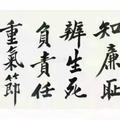 知廉恥
辨生死
負責任
重氣節